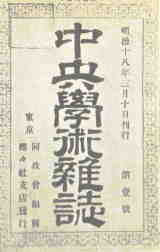 明治十八年三月十日刊行 第壹號
中央學術雜誌
東京 同攻會編輯
團々社支店發行